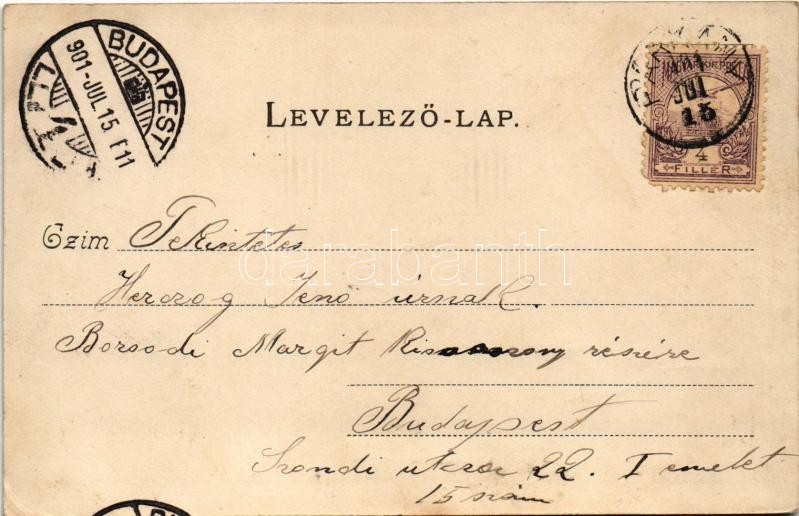 BUDAPEST
901-JUL.15. F11
LEVELEZŐ-LAP.
901
JUL
15
4
FILLÉR
Czim Tekintetes
Herczog Jenő úrnak.
Borsodi Margit Kisasszony részére
Budapest
Szondi utcza 22. I emelet
15 szám
darabanth